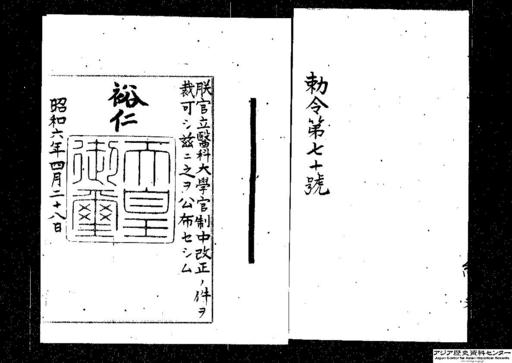 勅令第七十號
朕官立醫科大學官制中改正ノ件ヲ
裁可シ玆ニ之ヲ公布セシム
裕仁
天皇
御璽
昭和六年四月二十八日
アジア歴史資料センター
Japan Center for Asian Historical Records